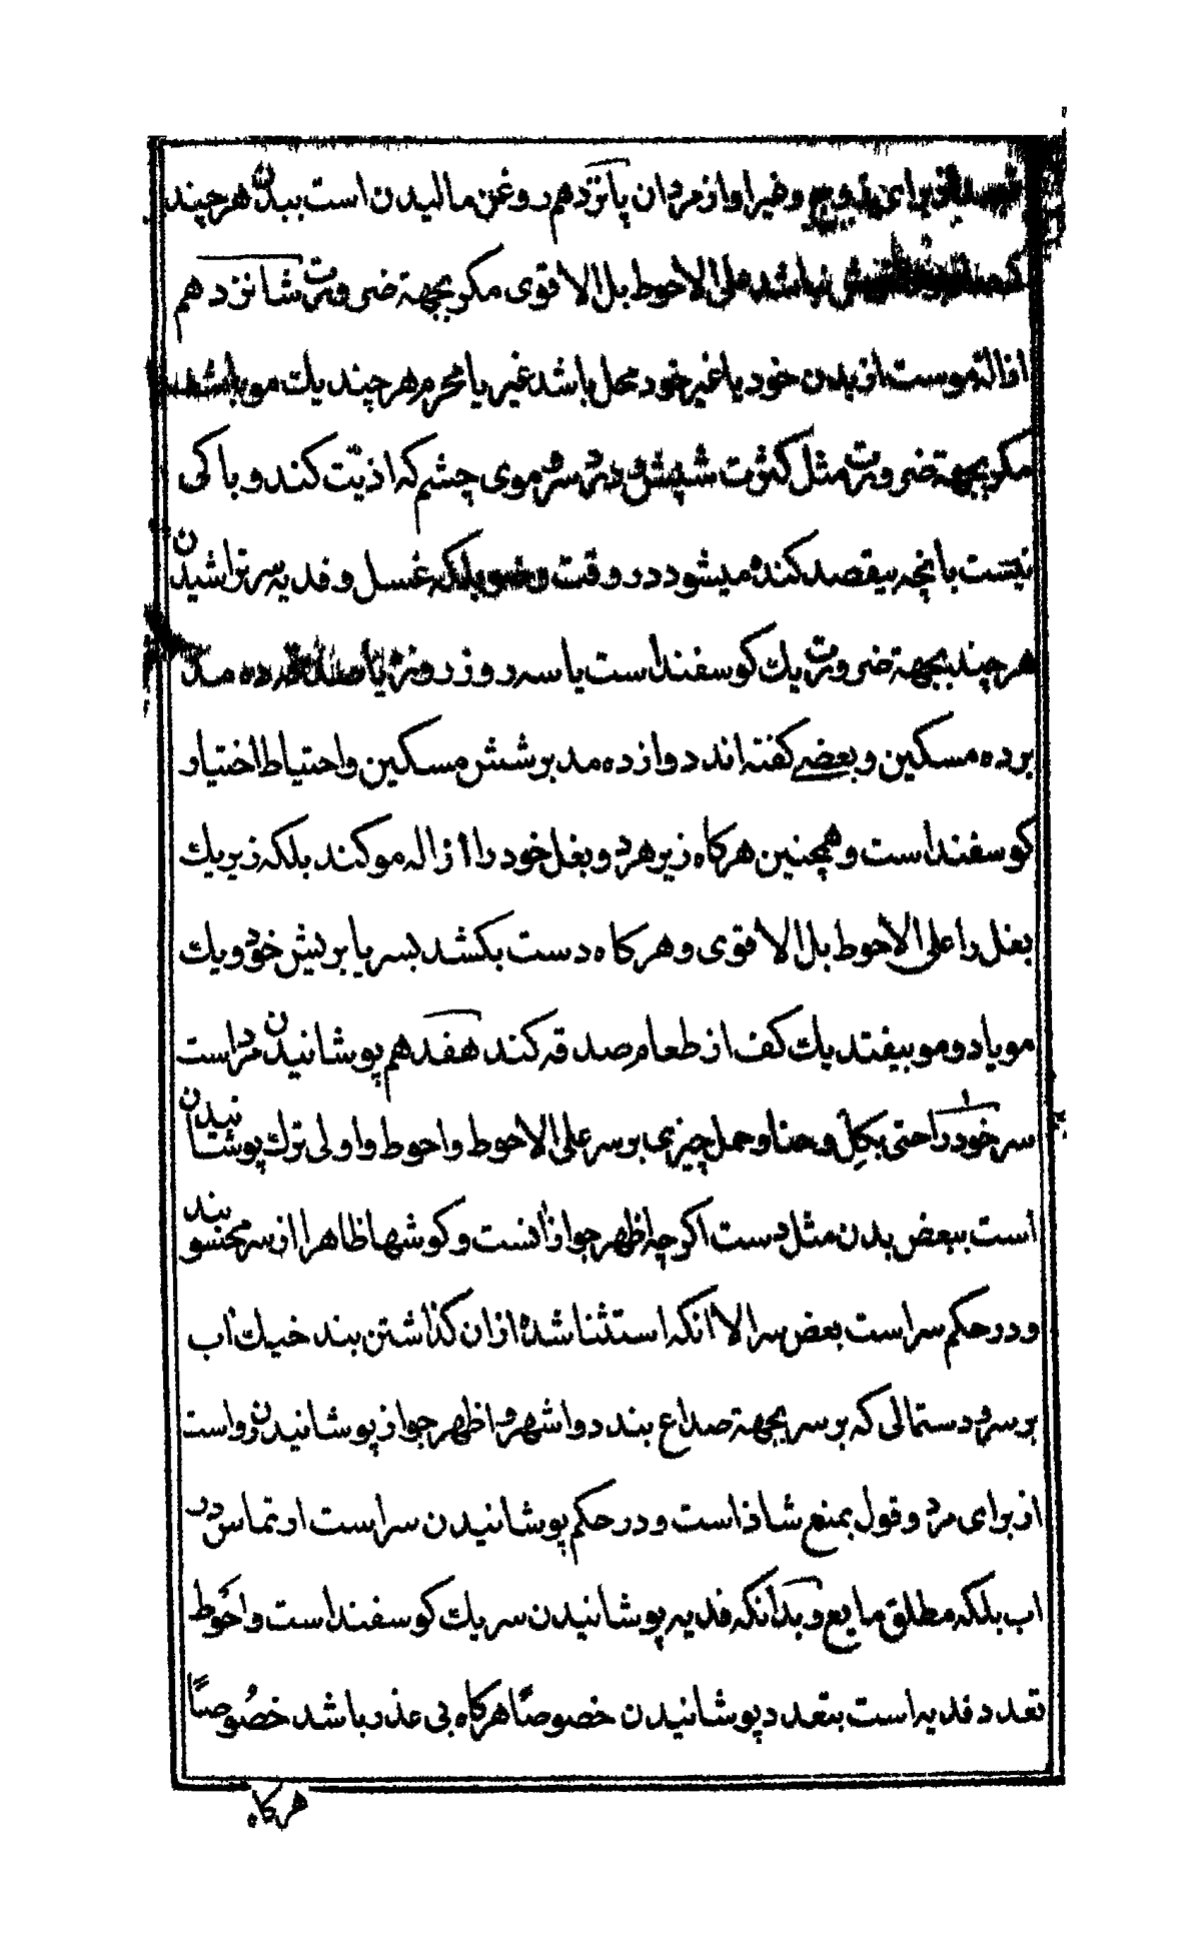 از برای زوج و غیر او از مردان پانزدهم روغن مالیدن است ببدن هر چند
نباشد علی الاحوط بل الاقوی مکر بجهة ضرورت شانزدهم
ازالة موست از بدن خود یا غیر خود محل باشد غیر یا محرم هر چند یك مو باشد
مکر بجهة ضرورت مثل کثرت شپش و درد سر و موی چشم که اذیت کند و باکی
نیست بانچه بیقصد کنده میشود در وقت وضو بلکه غسل و فدیه سر تراشیدن
هر چند بجهة ضرورت یك کوسفند است یا سه روز روزه یا صدقه ده مد
بر ده مسکین و بعضی کفته اند دوازده مد بر شش مسکین و احتیاط اختیار
کوسفند است و همچنین هر کاه زیر هر دو بغل خود را ازاله مو کند بلکه زیر یك
بغل را علی الاحوط بل الاقوی و هر کاه دست بکشد بسر یا بریش خود و یك
مو یا دو مو بیفتد یك کف از طعام صدقه کند هفدهم پوشانیدن مرد است
سر خود را حتی بکل و حنا و حمل چیزی بر سر علی الاحوط و احوط و اولی ترك پوشانیدن
است ببعض بدن مثل دست اکر چه اظهر جواز انست و کوشها ظاهرا از سر محسوبند
و در حکم سر است بعض سر الا انکه استثنا شده ازان کذاشتن بند خیك اب
بر سر و دستمالی که بر سر بجهة صداع بندد و اشهر و اظهر جواز پوشانیدن رواست
از برای مرد و قول بمنع شاذ است و در حکم پوشانیدن سر است ارتماس در
اب بلکه مطلق مایع و بدانکه فدیه پوشانیدن سر یك کوسفند است و احوط
تعدد فدیه است بتعدد پوشانیدن خصوصًا هر کاه بی عذر باشد خصُوصًا
هر کاه